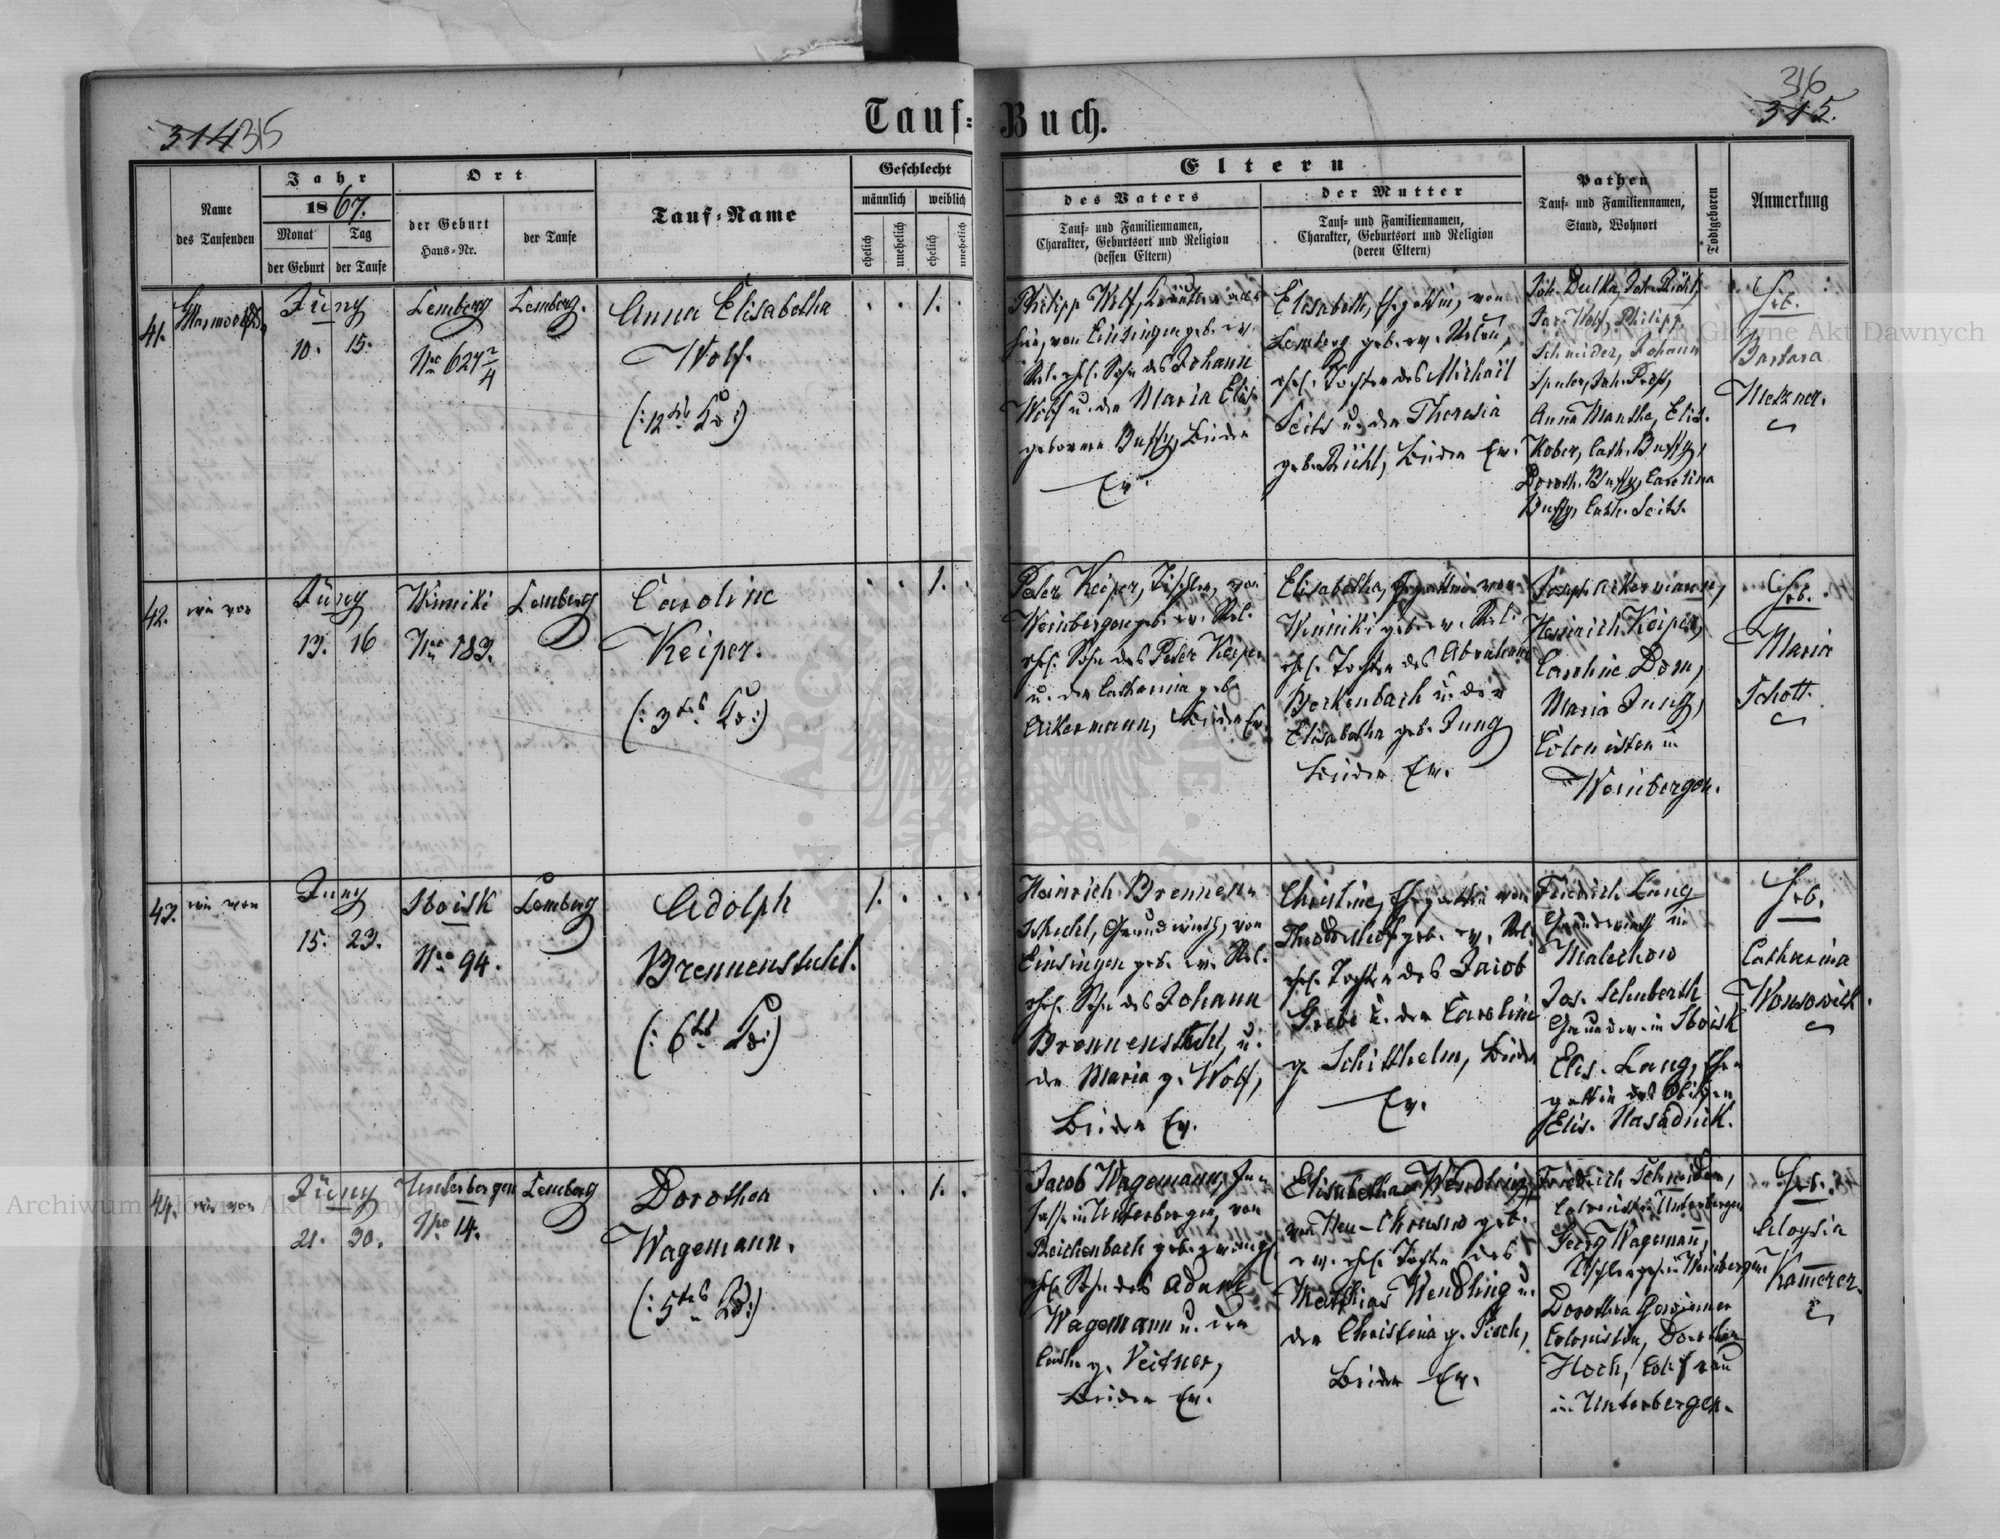 314 315
Tauf-Buch.
316
315.
Name
des Taufenden
Jahr
1867.
Monat
Tag
der Geburt
der Taufe
Ort
der Geburt
Haus-Nr.
der Taufe
Tauf-Name
Geschlecht
männlich
weiblich
ehelich
unehelich
ehelich
unehelich
Eltern
des Vaters
Tauf- und Familiennamen,
Charakter, Geburtsort und Religion
(dessen Eltern)
der Mutter
Tauf- und Familiennamen,
Charakter, Geburtsort und Religion
(deren Eltern)
Pathen
Tauf- und Familiennamen,
Stand, Wohnort
Todtgeboren
Anmerkung
41.
Juny
10. 15.
Lemberg
Nro 627 2/4
Lemberg.
Anna Elisabetha
Wolf.
1.
Philipp Wolf,
von Einsingen geb. ev.
Rel. ehel. Sohn des Johann
Wolf u. der Maria Elis.
geborenen Buffy, Beide
Ev.
Elisabeth, Ehegattin, von
Lemberg geb. ev. Religion,
ehel. Tochter des Michail
Seits u. der Theresia
geb. Rückl, Beide Ev.
Joh. Dulka,
Jac. Wolf, Philipp
Schneider, Johann
Anna Manthe, Elis.
Kober, Cath. Buffy,
Doroth. Buffy, Carolina
Buffy, Cath. Seits.
Heb.
Barbara
Metzner.
42.
wie vor
Juny
13. 16
Winniki
Nro 183.
Lemberg
Caroline
Keiper.
(: 3tes :)
1.
Peter Keiper, Tischler, von
Weinbergen geb. ev. Rel.
ehel. Sohn des Peter Keiper
u. der Catharina geb.
Ackermann, Beide Ev.
Elisabetha, Ehegattin von
Winniki geb. ev. Rel.
ehel. Tochter des Abraham
Borkenbach u. der
Elisabetha geb. Jung
Beide Ev.
Joseph Ackermann,
Heinrich Keiper,
Caroline Dorn,
Maria Jung,
Colonisten in
Weinbergen.
Heb.
Maria
Schott.
43.
wie vor
Juny
15. 23.
Sboisk
Nro 94.
Lemberg
Adolph
Brennenstuhl.
1.
Heinrich Brennen-
stuhl, Grundwirth, von
Einsingen geb. ev. Rel.
ehel. Sohn des Johann
Brennenstuhl, u.
der Maria g. Wolf,
Beide Ev.
Christine, Ehegattin von
Theodorshof geb. ev. Rel.
ehel. Tochter des Jacob
Grebe u. der Caroline
g. Schitthelm, Beide
Ev.
Friedrich Lang
Grundwirth in
Malechow
Jos. Schuberth
Grundw. in Sboisk
Elis. Lang, Ehe-
gattin des Obigen
Elis. Nasadnik.
Heb.
Catharina
Wonsowich.
44.
wie vor
Juny
21. 30.
Unterbergen
Nro 14.
Lemberg
Dorothea
Wagemann.
(: 5tes :)
1.
Jacob Wagemann, Inn-
sasse in Unterbergen, von
Reichenbach geb. evang.
ehel. Sohn des Adam
Wagemann u. der
Cath. g. Veitner,
Beide Ev.
Elisabetha Wendling,
von Neu-Chrusno geb.
ev. ehel. Tochter des
Mathias Wendling u.
der Christina g. Pisch,
Beide Ev.
Friedrich Schneider,
Colonist in Unterbergen
Georg Wageman,
in Weinbergen
Dorothea
Colonistin, Dorothea
Hoch,
in Unterbergen.
Heb.
Aloysia
Kamerer.
Archiwum Główne Akt Dawnych
Archiwum Główne Akt Dawnych